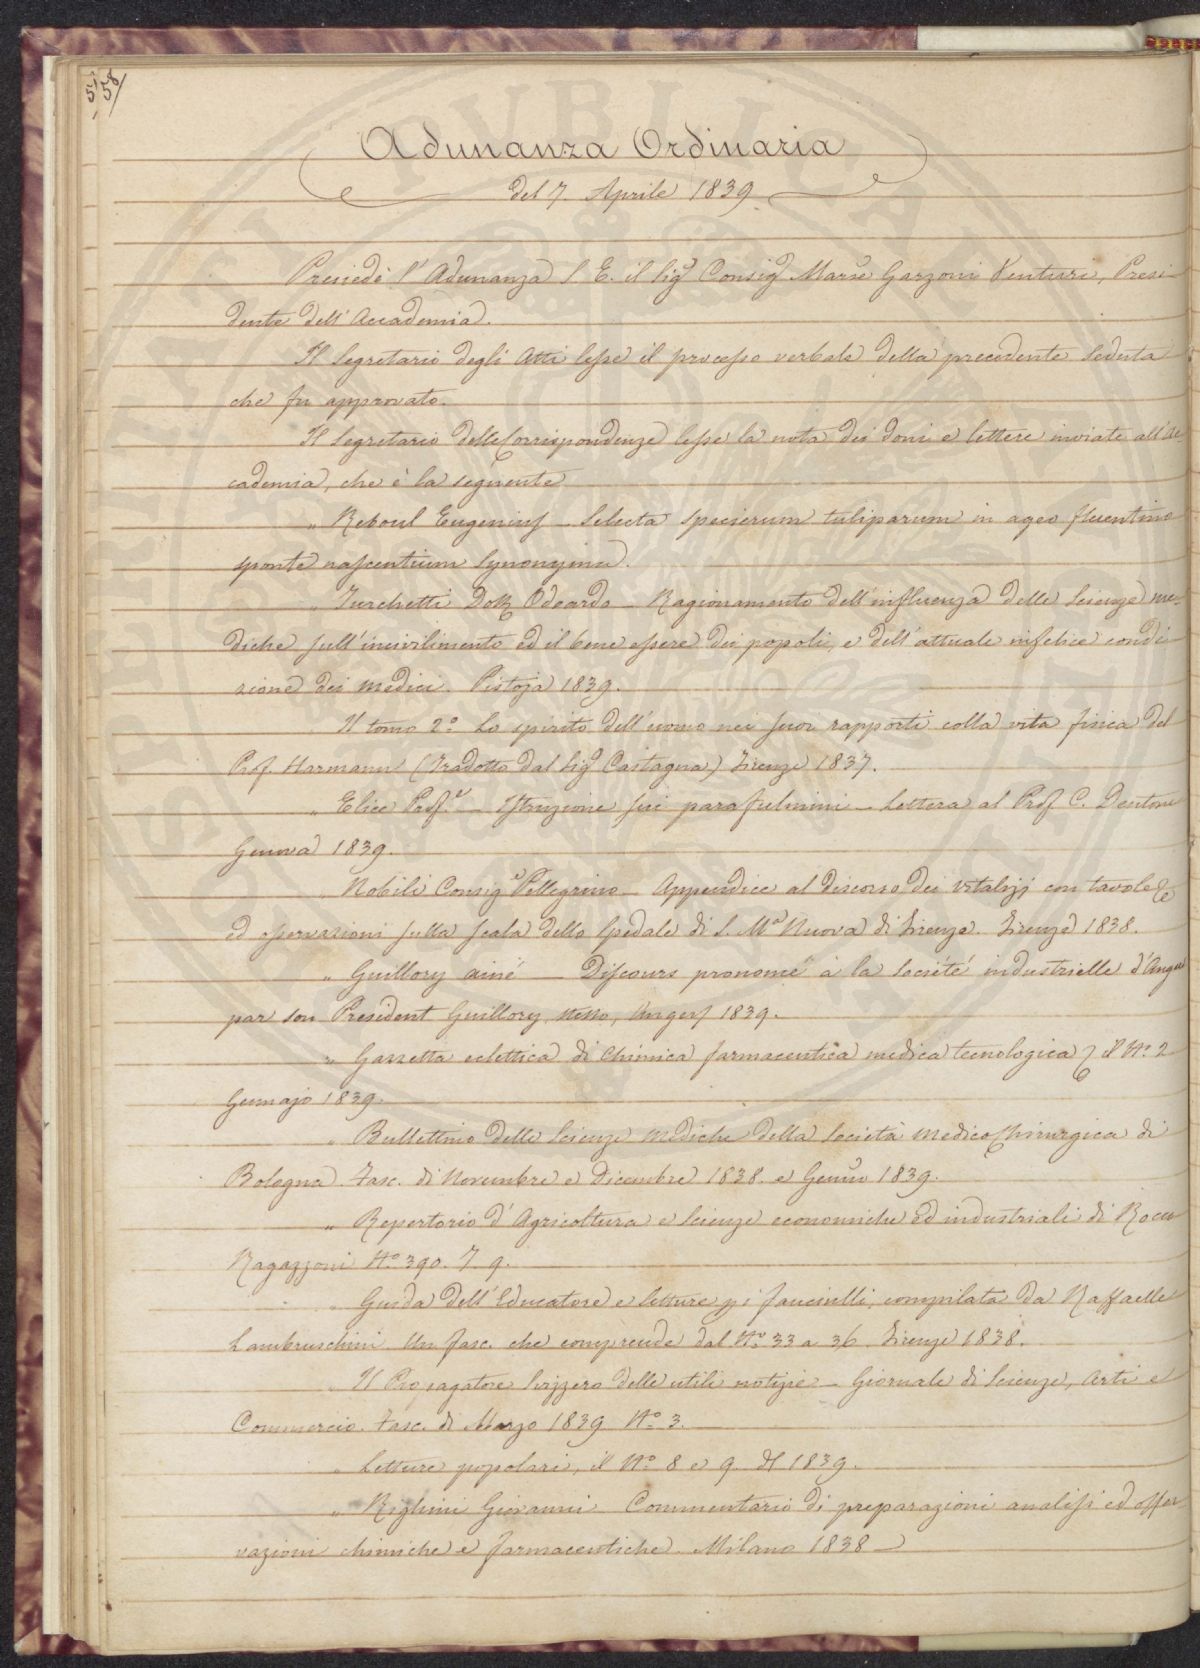 58
Adunanza Ordinaria
del 7. Aprile 1839
Presiedè l'Adunanza S. E. il Sigr Consigr Marse Garzoni Venturi, Presi
dente dell'Accademia.
Il Segretario degli Atti lesse il processo verbale della precedente Seduta
che fu approvato.
Il Segretario delle Corrispondenze lesse la nota dei doni e lettere inviate all'Ac-
cademia, che è la seguente
„ Reboul Eugenius – Selecta specierum tuliparum in agro fluentino
sponte nascentium Synonyma.
„ Turchetti Dott Odoardo – Ragionamento dell'influenza delle Scienze me-
diche sull'incivilimento ed il bene essere dei popoli, e dell'attuale infelice condi
zione dei medici. Pistoja 1839.
Il tomo 2º Lo spirito dell'uomo nei suoi rapporti colla vita fisica del
Prof. Harmann (Tradotto dal Sigr Castagna) Firenze 1837.
„ Elice Profr – Istruzione sui parafulmini – Lettera al Prof C. Dentone
Genova 1839.
„ Nobili Consigr Pellegrino – Appendice al Discorso dei vitalizj con tavole
ed osservazioni sulla scala dello Spedale di S. Ma Nuova di Firenze. Firenze 1838.
„ Guillory ainé – Discours prononcé à la Société industrielle d'Anger
par son President Guillory stesso, Angers 1839.
„ Gazzetta eclettica di Chimica farmaceutica medica tecnologica, il Nº 2
Gennajo 1839.
„ Bullettino delle Scienze Mediche della Società Medico Chirurgica di
Bologna. Fasc. di Novembre e Dicembre 1838. e Gennº 1839.
„ Repertorio d'Agricoltura e Scienze economiche ed industriali di Rocco
Ragazzoni Nº 390. 7 9.
„ Guida dell'Educatore e letture pi fanciulli, compilata da Raffaelle
Lambruschini Un fasc. che comprende dal Nº 33 a 36. Firenze 1838.
„ Il Propagatore Svizzero delle utili notizie – Giornale di Scienze, Arti e
Commercio. Fasc. di Marzo 1839 Nº 3.
„ Letture popolari, il Nº 8 e 9. del 1839.
„ Righini Giovanni Commentario di preparazioni analisi ed osser
vazioni chimiche e farmaceutiche Milano 1838 –